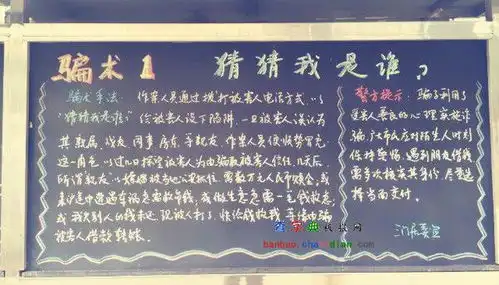 骗术1 猜猜我是谁?
骗术手法: 作案人员通过拨打被害人电话方式,以
"猜猜我是谁?"给被害人设下陷阱,一旦被害人误认为
其数居、战友、同事、房东、手机友,作案人员便顺势冒充
这一角色,以过几日探望被害人为由骗取被害人信任,几天后,
所谓亲友,以嫖娼被当地公安抓住,需数万元人民币赎金,或
来的途中遭遇车祸急需救命钱,或做生意急需一笔钱救急,
或我别人的钱未还,现被人打了,快给钱救我,等借口骗
被害人借款转账。
警方提示: 骗子利用了
受害人善良的心理实施诈
骗,广大市民应对陌生人时刻
保持警惕,遇到朋友借钱
需多次核实其身份,尽量选
择当面交付。
banbao.chazidian.com